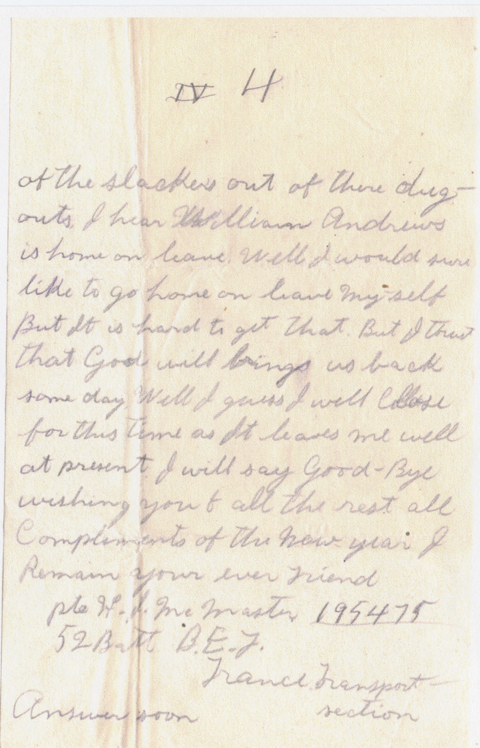 IV 4
of the slackers out of there dug-
outs, I hear William Andrews
is home on leave. Well I would sure
like to go home on leave My-self
But It is hard to get that. But I trust
that God will brings us back
some day Well I guess I well Close
for this time as It leaves me well
at present I will say Good-Bye
wishing you & all the rest all
Compliments of the New year I
Remain your ever Friend
pte H. J. McMaster 195475
52 Batt B.E.F.
France Transport-
Answer soon section